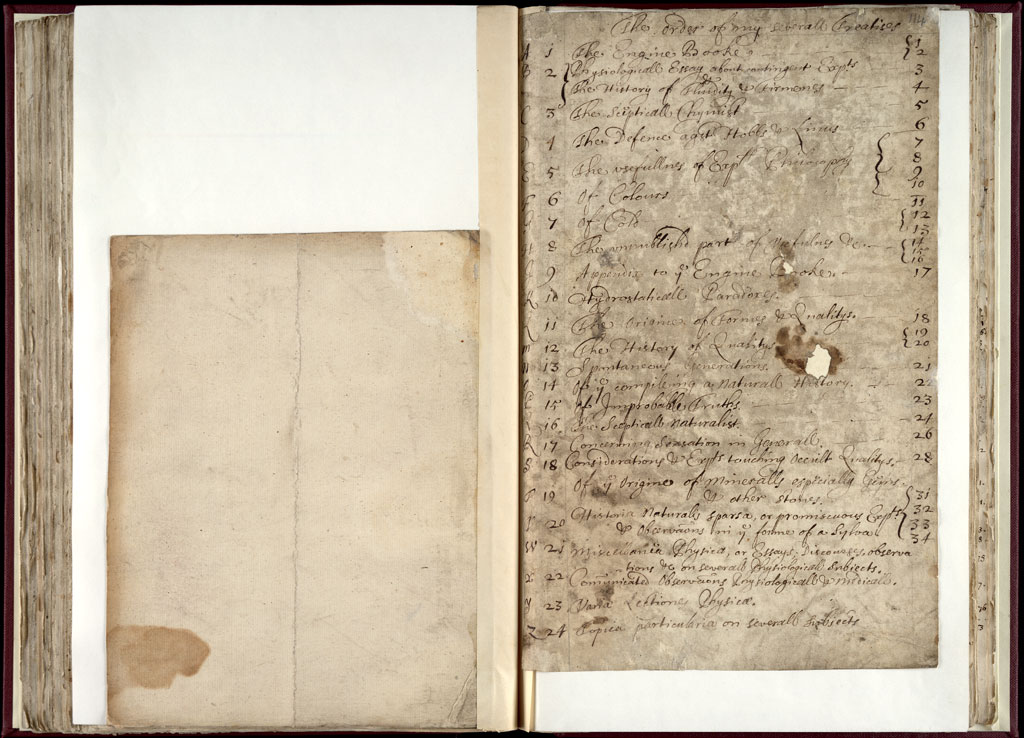 The order of my severall Treatises
A 1 The Engine Booke { 1 2
B 2 { Physiologicall Essay about contingent Expts 3
The History of Fluidity & Firmness — 4
C 3 The Scepticall Chymist 5
D 4 The Defence agst Hobbs & Linus 6
E 5 The usefullnes of Expl Philosophy { 7 8 9 10
F 6 Of Colours 11
G 7 Of Cold { 12 13
H 8 The unpublishd part of &c — { 14 15 16
9 Appendix to ye Engine Booke. 17
K 10 Hydrostaticall Paradoxes.
11 The Origine of Formes & Qualitys. 18
M 12 The History of Qualitys { 19 20
13 Spontaneous Generations. 21
14 Of ye compileing a Naturall History. 22
15 Of Improbable Truths 23
16 The Scepticall Naturalist. 24
R 17 Concerning Sensation in Generall 26
S 18 Considerations & Expts touching Occult Qualitys. 28
19 Of ye Origine of Mineralls especially Gems
& other stones.
20 Historia Naturalis sparsa, or promiscuous Expts { 31 32 33 34
& Observaōns in ye forme of a Sylva
W 21 Miscellania Physica, or Essays, Discourses, observa
tions &c on severall Physiological Subjects.
X 22 Comunicated Observaōns Physiologicall & Medicall.
Y 23 Varia Lectiones Physicæ.
Z 24 Topica particularia on severall subjects